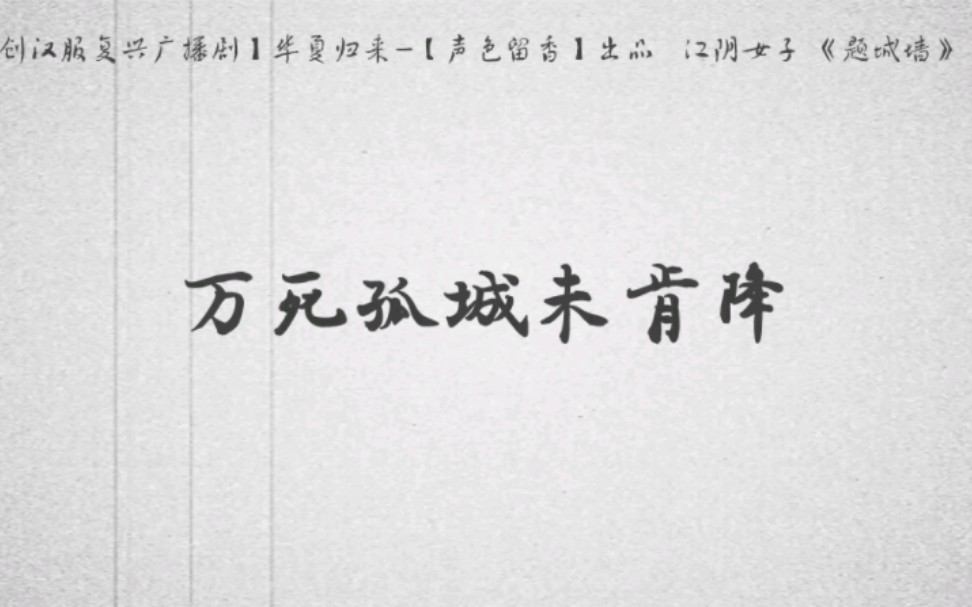 创汉服复兴广播剧】华夏归来-【声色留香】出品 江阴女子《题城墙》
万死孤城未肯降